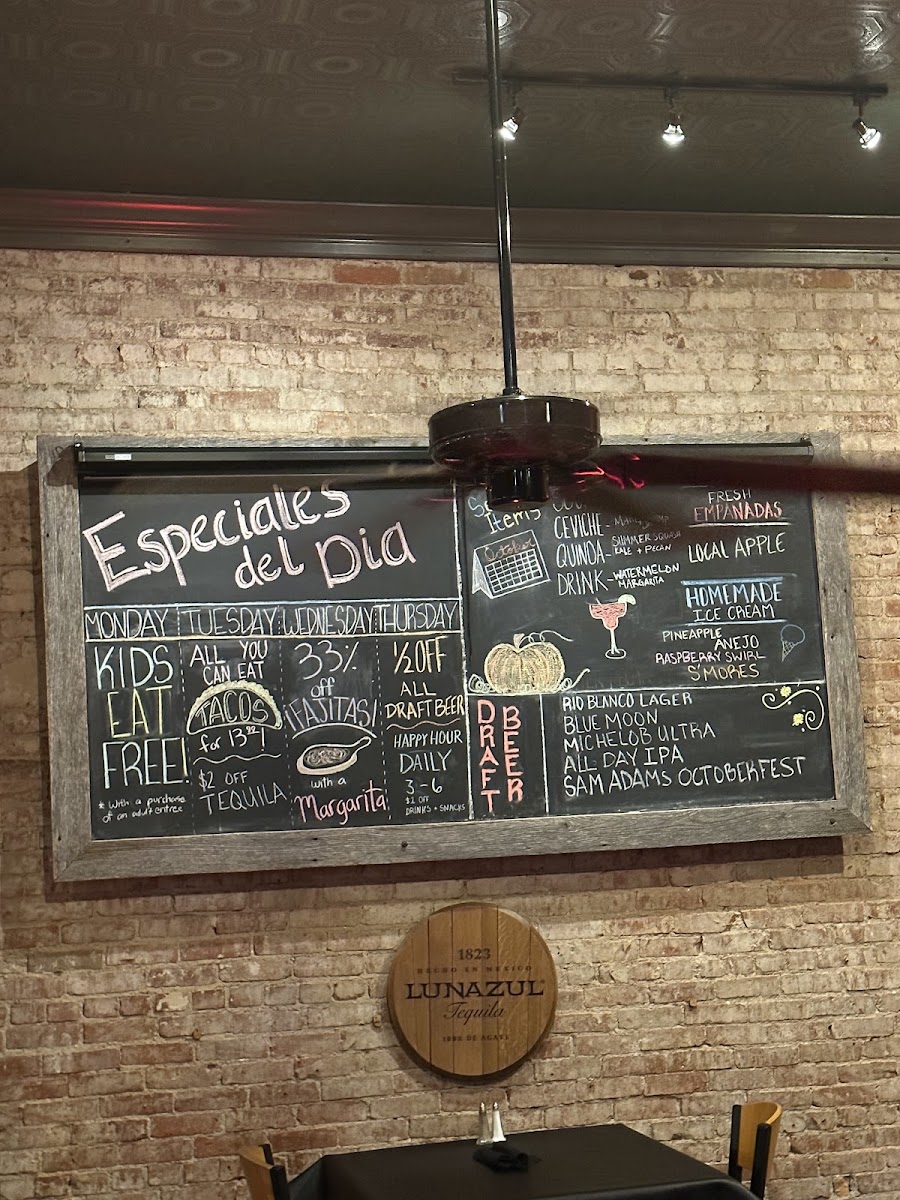 Especiales
del Dia
MONDAY
KIDS
EAT
FREE!
* with a purchase
of an adult entree
TUESDAY
ALL YOU
CAN EAT
TACOS
for 13.99!
$2 OFF
TEQUILA
WEDNESDAY
33%
off
¡FAJITAS!
with a
Margarita
THURSDAY
½ OFF
ALL
DRAFT BEER
HAPPY HOUR
DAILY
3-6
$2 OFF
DRINKS + SNACKS
Items
October
CEVICHE-
QUINOA- SUMMER SQUASH
KALE + PECAN
DRINK- WATERMELON
MARGARITA
FRESH
EMPANADAS
LOCAL APPLE
HOMEMADE
ICE CREAM
PINEAPPLE
ANEJO
RASPBERRY SWIRL
S'MORES
DRAFT
BEER
RIO BLANCO LAGER
BLUE MOON
MICHELOB ULTRA
ALL DAY IPA
SAM ADAMS OCTOBERFEST
1823
HECHO EN MEXICO
LUNAZUL
Tequila
100% DE AGAVE